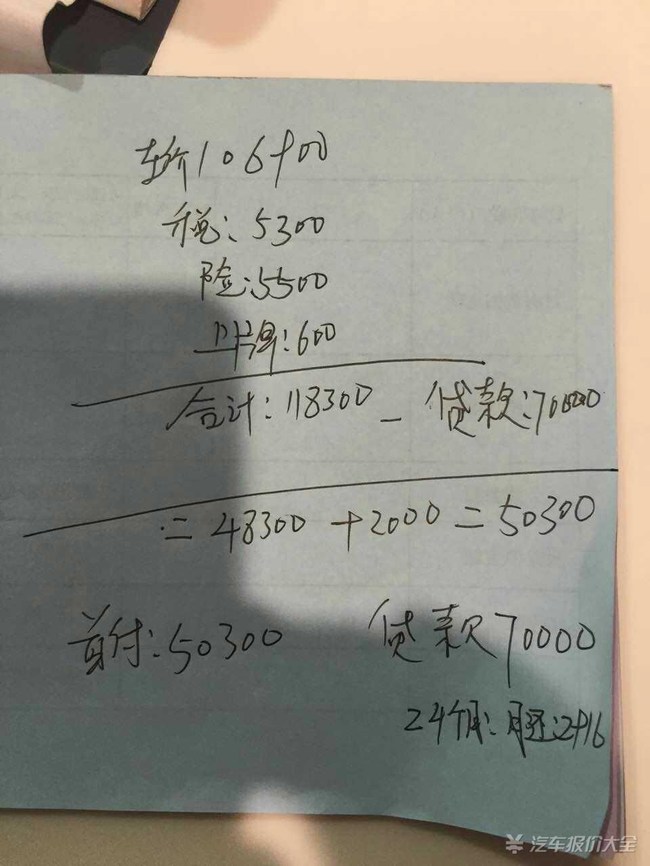 车价106900
税:5300
险:5500
上牌:600
合计:118300 - 贷款:70000
= 48300 + 2000 = 50300
首付:50300 贷款70000
24个月:月还:2916
汽车报价大全